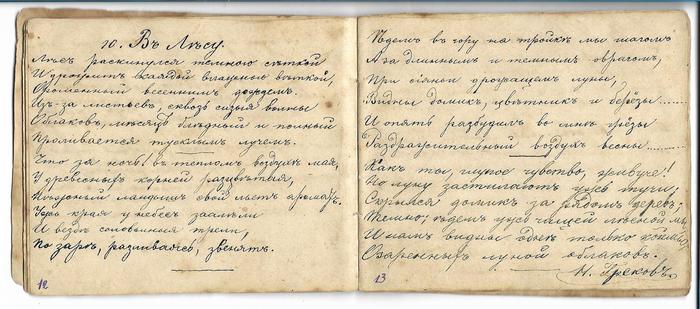 10. Въ Лѣсу.
Лѣсъ раскинулся темною сѣткой
И дрожитъ каждой влажною вѣткой,
Ороменный весеннимъ дождемъ.
Изъ-за листьевъ, сквозь сизыя волны
Облаковъ, мѣсяцъ блѣдный и полный
Проливается тусклымъ лучемъ.
Что за ночь! въ тепломъ воздухѣ мая,
У древесныхъ корней разцвѣтая,
Ландышъ свой льетъ ароматъ.
Ужъ края у небесъ заалѣли
И вездѣ соловьиныя трели,
По зарѣ, разливаясь, звенятъ.
12
Ѣдемъ въ гору на тройкѣ мы шагомъ
А за длиннымъ и темнымъ оврагомъ,
При сіяньи дрожащемъ луны,
Видны домикъ, цвѣтникъ и берёзы........
И опять разбудилъ во мнѣ грёзы
Раздражительный воздухъ весны.........
Какъ ты, глупое чувство, живуче!
Но луну застилаютъ ужъ тучи;
Скрылся домикъ за рядомъ деревъ;
Темно; ѣдемъ ужъ чащей лѣсной мы
И намъ видны однѣ только каймы
Озаренныхъ луной облаковъ.
Н. Грековъ.
13